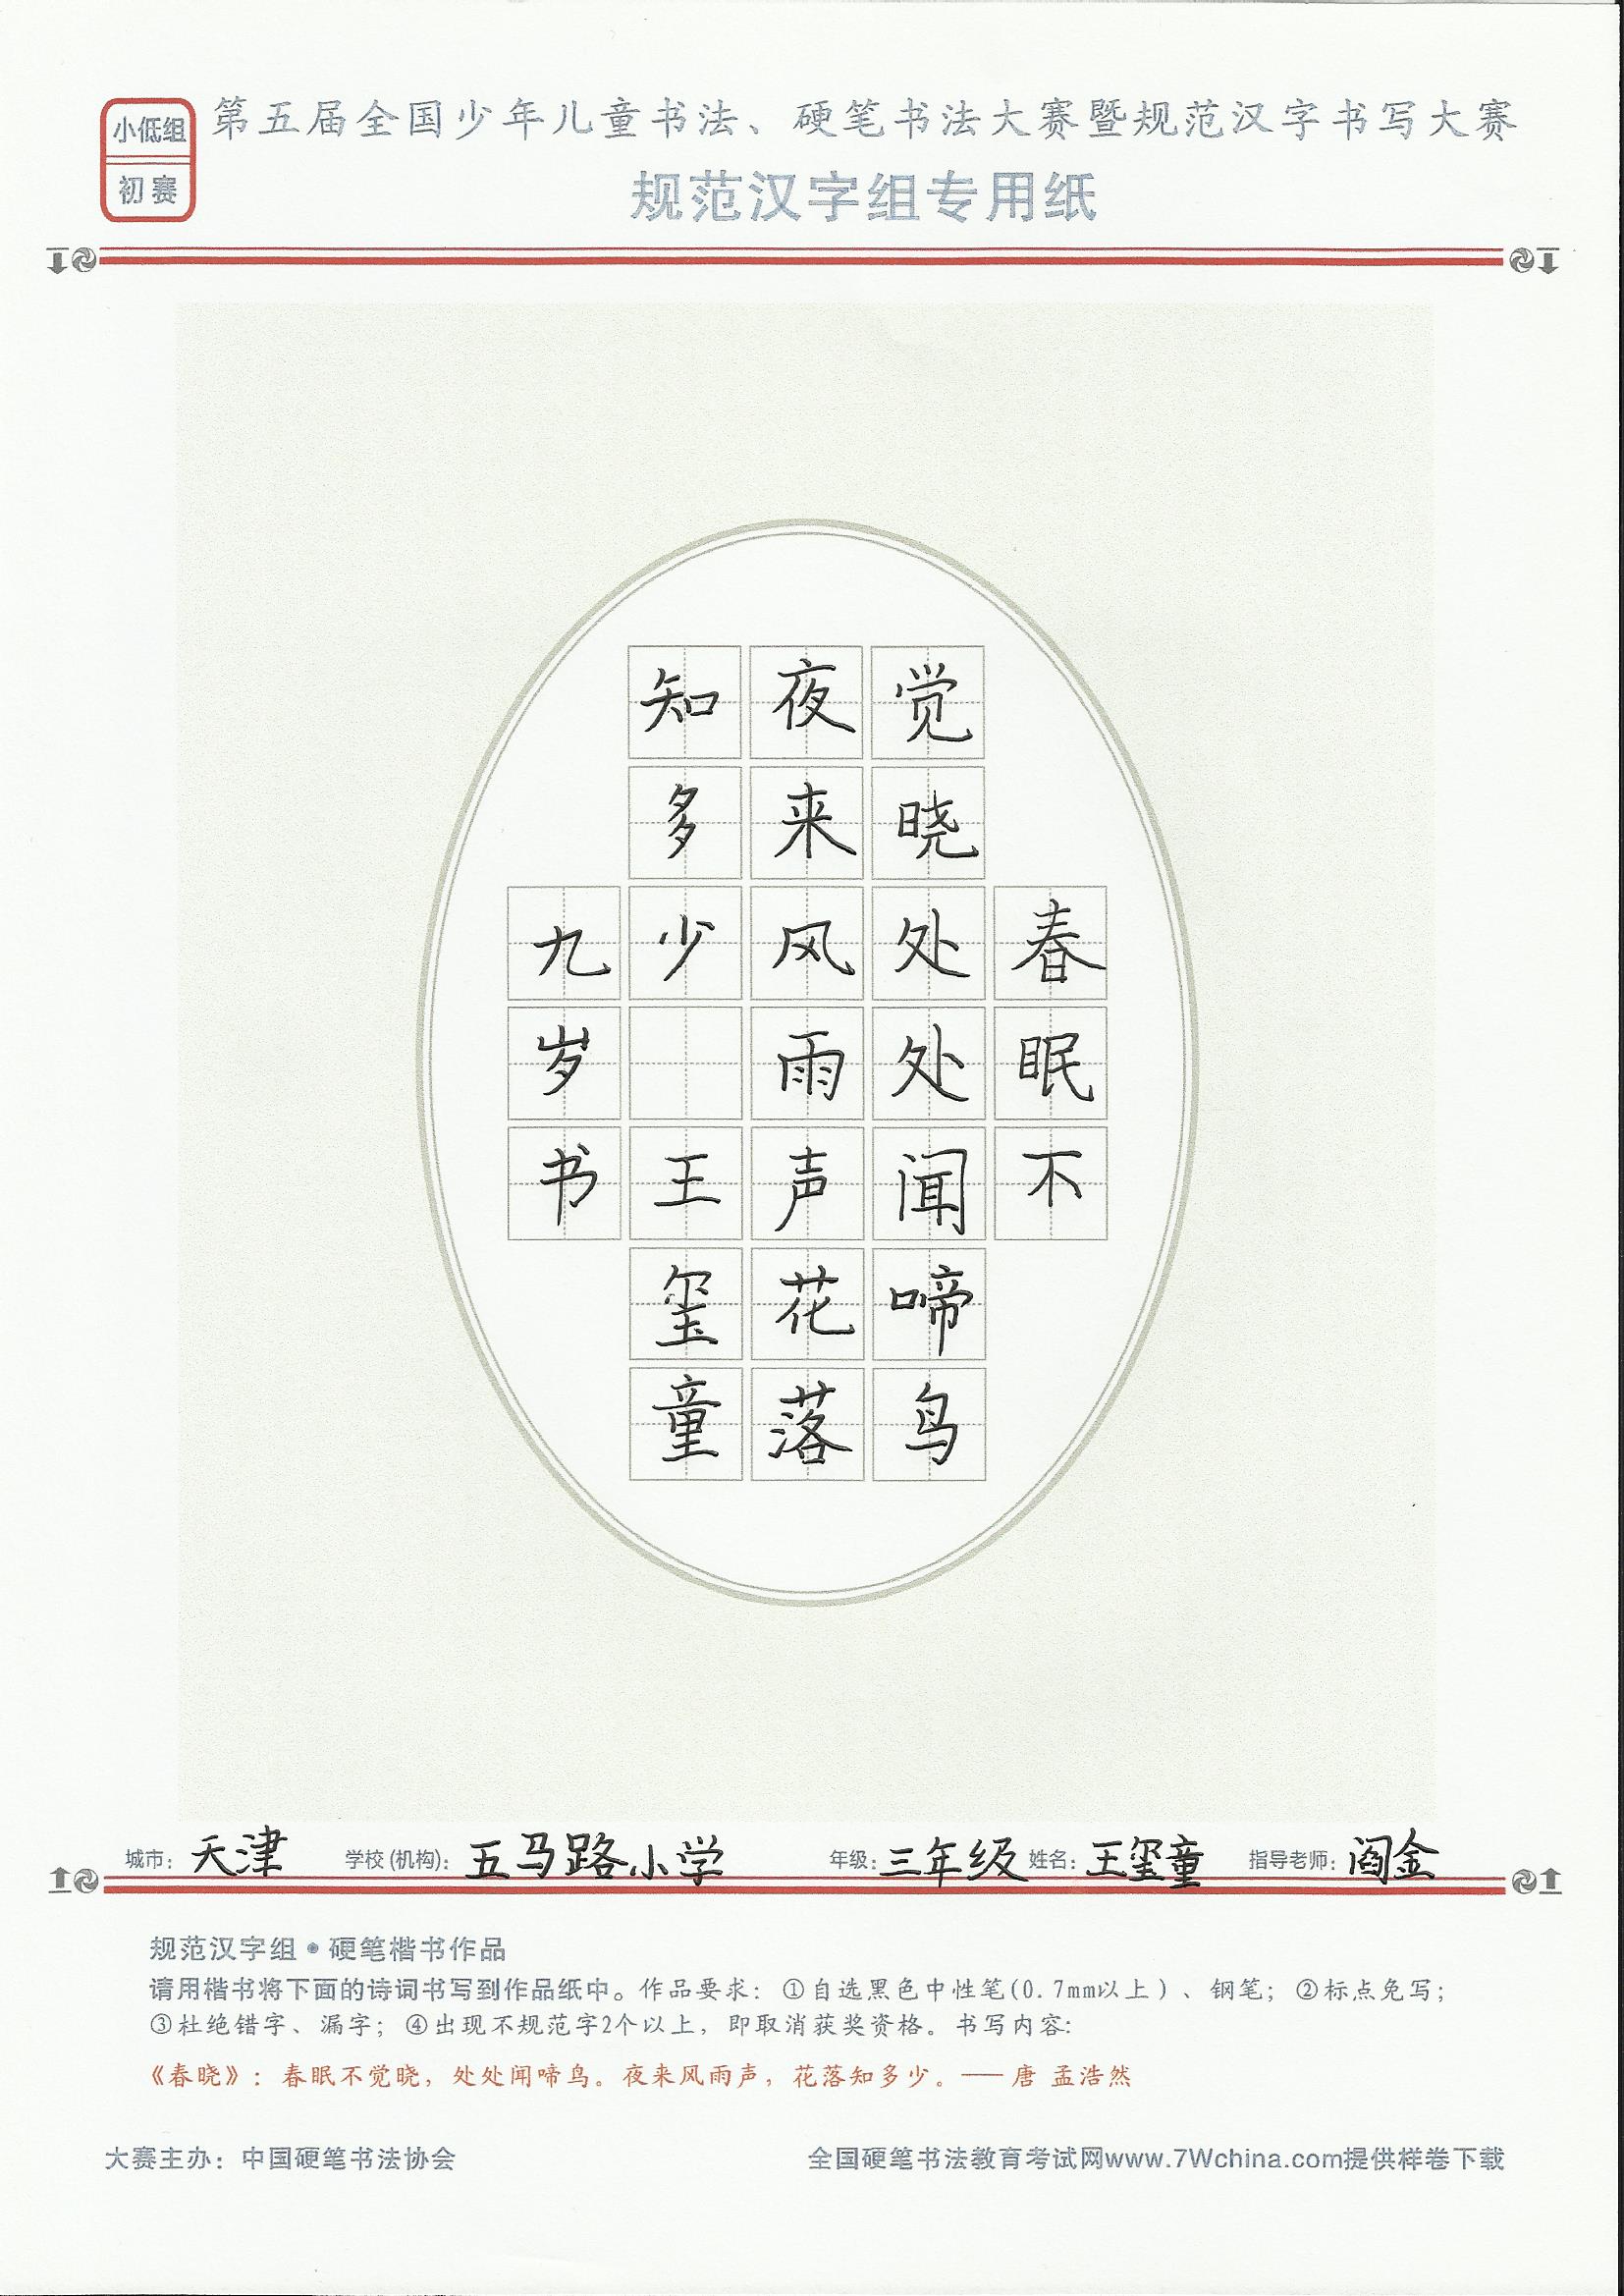 小低组
初赛
第五届全国少年儿童书法、硬笔书法大赛暨规范汉字书写大赛
规范汉字组专用纸
春眠不
觉晓处处闻啼鸟
夜来风雨声花落
知多少 王玺童
九岁书
城市：天津 学校(机构)：五马路小学 年级：三年级 姓名：王玺童 指导老师：阎金
规范汉字组•硬笔楷书作品
请用楷书将下面的诗词书写到作品纸中。作品要求：①自选黑色中性笔(0.7mm以上)、钢笔；②标点免写；
③杜绝错字、漏字；④出现不规范字2个以上，即取消获奖资格。书写内容：
《春晓》：春眠不觉晓，处处闻啼鸟。夜来风雨声，花落知多少。——唐 孟浩然
大赛主办：中国硬笔书法协会
全国硬笔书法教育考试网www.7Wchina.com提供样卷下载